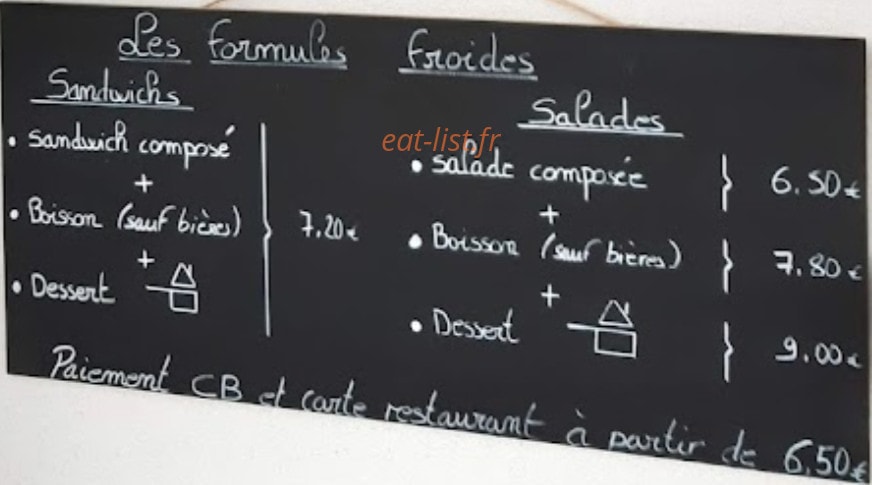 Les formules froides
Sandwichs
• sandwich composé
+
• Boisson (sauf bières)
+
• Dessert
7.20€
Salades
eat-list.fr
• salade composée } 6.50€
+
• Boisson (sauf bières) } 7.80€
+
• Dessert } 9.00€
Paiement CB et carte restaurant à partir de 6,50€